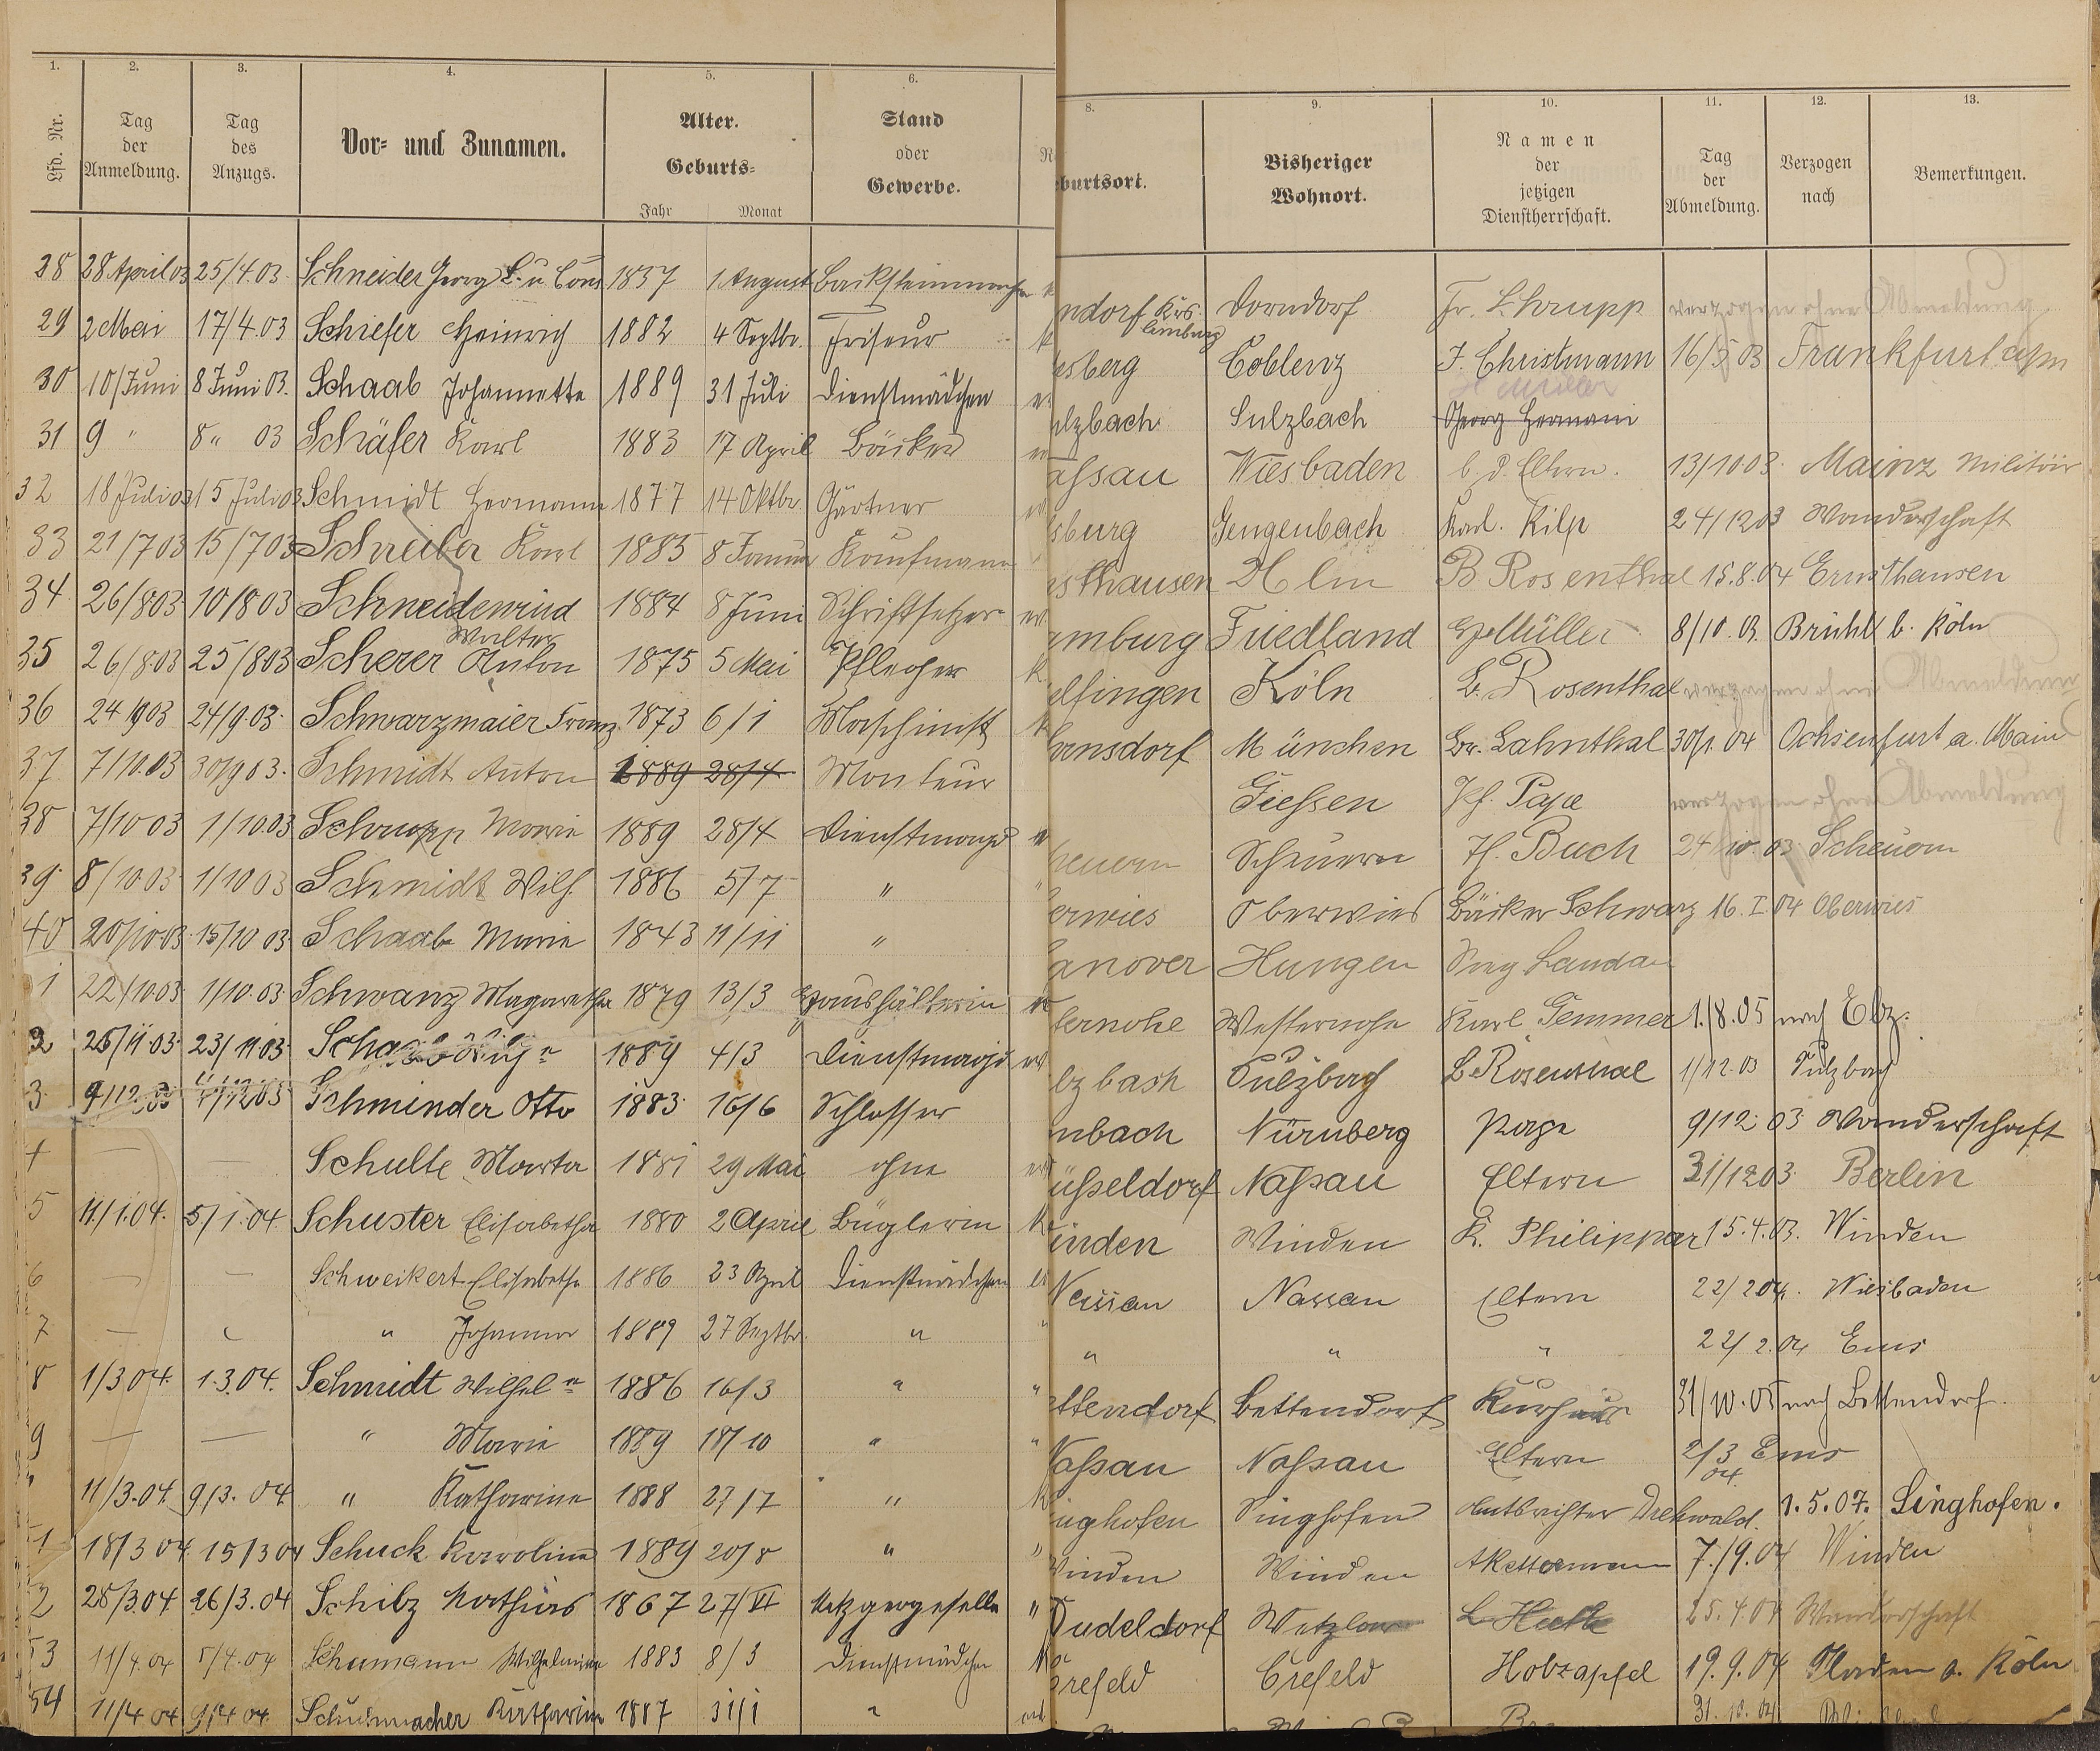 1. 2. 3. 4. 5. 6.
Lfd. Nr. Tag der Anmeldung. Tag des Anzugs. Vor- und Zunamen. Alter. Geburts- Jahr Monat Stand oder Gewerbe.
28 28 April 03 25/4.03. Schneider Georg L. u Cons 1837 1 August
29 2 Mai 17/4.03 Schiefer Heinrich 1882 4 Septbr. Friseur
30 10/Juni 8 Juni 03. Schaab Johannette 1889 31 Juli Dienstmädchen
31 9 " 8 " 03 Schäfer Karl 1883 17 April Bäcker
32 18 Juli 03 15 Juli 03 Schmidt Hermann 1877 14 Oktbr. Gärtner
33 21/7 03 15/7 03 Schreiber Karl 1885 8 Januar Kaufmann
34 26/8 03 10/8 03 Schneidewind Walter 1884 8 Juni Schriftsetzer
35 26/8.03 25/8 03 Scherer Anton 1875 5 Mai Pfleger
36 24/9 03 24/9.03. Schwarzmaier Franz 1873 6/1 Maschinist
37 7/10.03 30/9 03. Schmidt Anton 1889 28/4 Monteur
38 7/10 03 1/10.03 Schrupp Marie 1889 28/4 Dienstmagd
39. 8/10 03 1/10 03 Schmidt Wilh. 1886 5/7 "
40 20/10 03. 15/10 03. Schaab Marie 1843 11/11 "
1 22/10.03. 1/10.03. Schwanz Magaretha 1879 13/3 Haushälterin
2 25/11.03. 23/11 03. 1889 4/3 Dienstmagd
3 9/12 03 Schminder Otto 1883 16/6 Schlosser
4 — — Schulte Marta 1881 29 Mai ohne
5 11./1.04. 5/1.04 Schuster Elisabetha 1880 2 April Büglerin
6 — — Schweikert Elisabetha 1886 23 April Dienstmädchen
7 — " Johanna 1889 27 Septbr. "
8 1/3 04. 1.3.04. Schmidt Wilhel n 1886 16/3 "
9 — — " Marie 1889 18/10 "
" 11/3.04. 9/3.04 " Katharine 1888 27/7 "
51 18/3 04. 15/3 04 Schuck Karoline 1889 20/8 "
2 28/3.04 26/3.04 Schilz Mathias 1867 27/VI Metzgergeselle "
53 11/4.04 5/4.04 Schumann Wilhelmine 1883 8/3 Dienstmädchen
54 11/4 04 9/4 04. Schuhmacher Katharine 1887 31/1 "
8. 9. 10. 11. 12. 13.
burtsort. Bisheriger Wohnort. Namen der jetzigen Dienstherrschaft. Tag der Abmeldung. Verzogen nach Bemerkungen.
ndorf Krs. Limburg Dorndorf Fr. L. Schrupp verzogen ohne Abmeldung
esberg Coblenz J. Christmann 16/5 03 Frankfurt a/m
H Müller
ulzbach Sulzbach Georg Hermani
assau Wiesbaden b. d. Eltern. 13/10 03. Mainz Militär
sburg Gengenbach Karl. Kilp 24/12 03 Wanderschaft
sthausen B Rosenthal 15.8.04 Ernsthausen
amburg Friedland Müller 8/10.03. Brühl b. Köln
elfingen Köln L. Rosenthal verzogen ohne Abmeldung
ernsdorf München Br. Lahnthal 30/1.04 Ochsenfurt a. Main
Giessen Pf. Pape verzogen ohne Abmeldung
heuern Scheuern H. Buch 24/10.03 Scheuern
erwies Oberwies Bäcker Schwarz 16.I.04 Oberwies
anover Hungen Sieg Landau
ternohe Westernohe Karl Gemmer 1./8.05 nach Elz.
lzbach Sulzbach L Rosenthal 1/12.03 Sulzbach
nbach Nürnberg Pape 9/12.03. Wanderschaft
üsseldorf Nassau Eltern 31/12 03. Berlin
inden Winden K. Philippar 15.4.03. Winden
Nassau Nassau Eltern 22/2 04. Wiesbaden
" " " 22/2.04 Ems
ettendorf Bettendorf Kurhaus 31/10.05 nach Bettendorf.
Nassau Nassau Eltern 2/3 04. Ems
inghofen Singhofen Amtsrichter Drehwald. 1.5.07. Singhofen.
Winden Winden A Kettermann 7./9.04 Winden
Dudeldorf Wetzlar L. Huth 25.4.04 Wanderschaft
Crefeld Crefeld Holzapfel 19.9.04 Köln
31.10.04